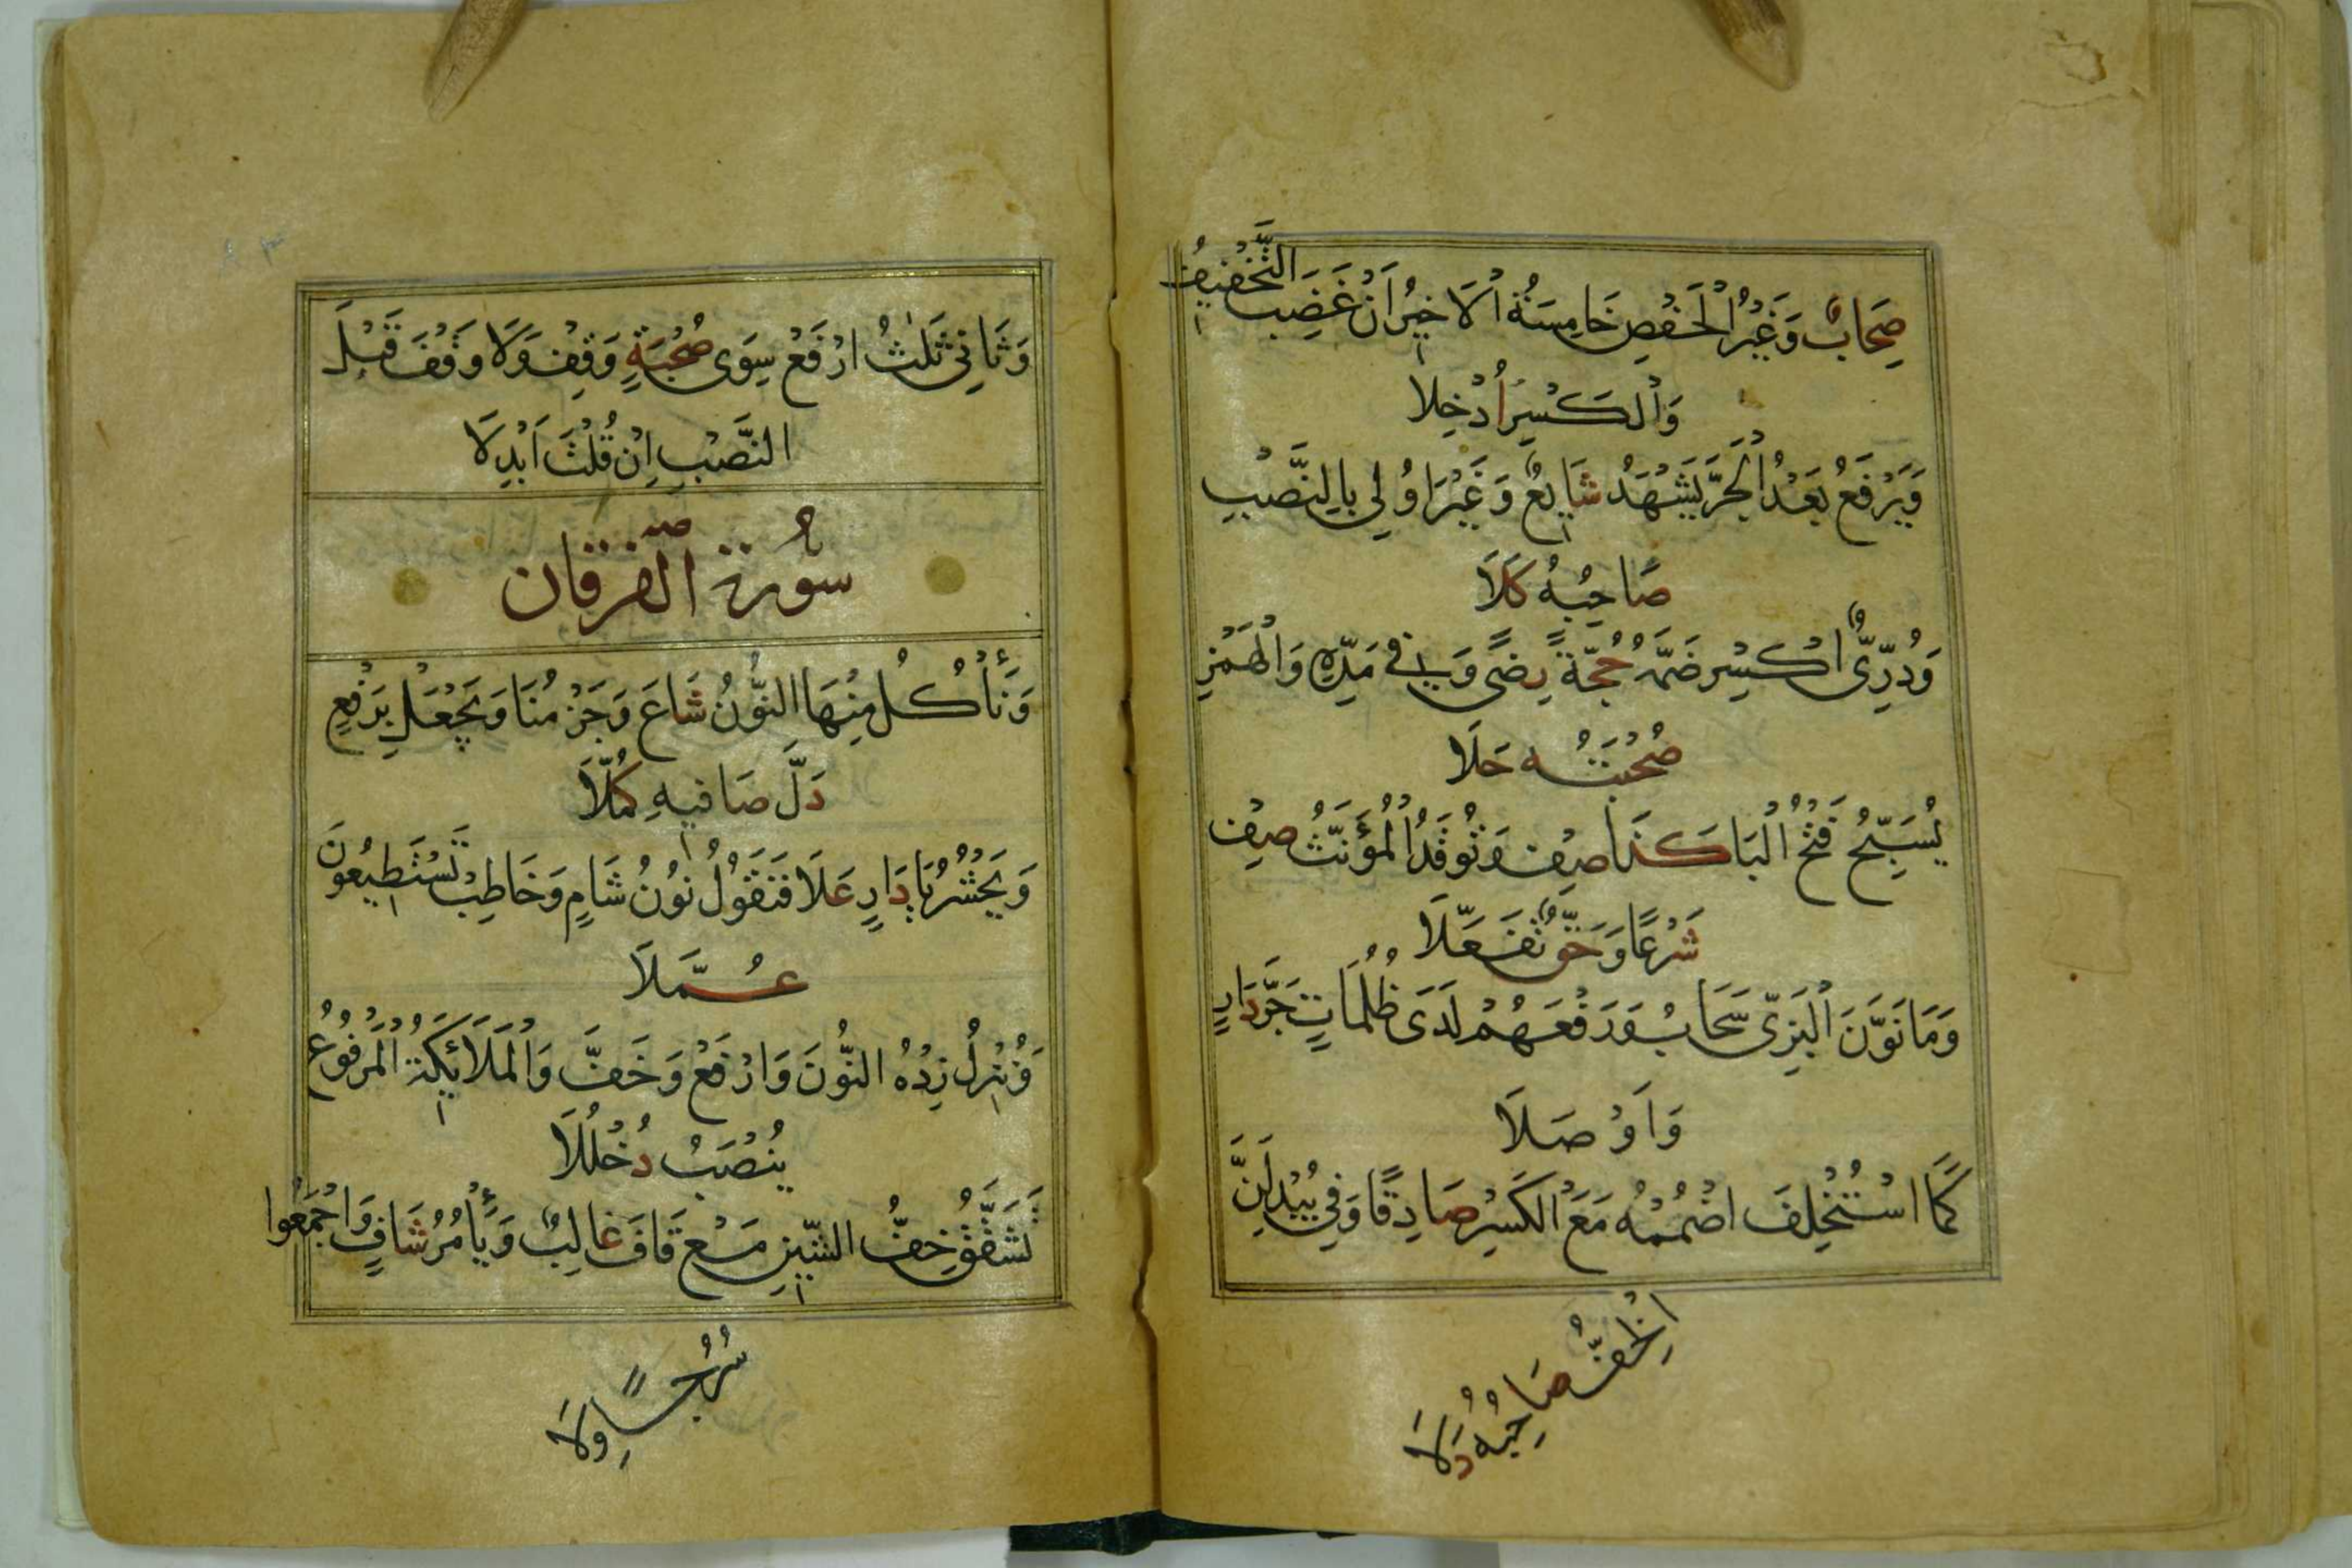 صِحَابٌ وَغَيْرُ الْحَفْصِ خَامِسَةُ الْاَخِيرُ اَنْ غَضِبَ التَّخْفِيفُ
وَالْكَسْرُ اُدْخِلَا
وَيَرْفَعُ بَعْدُ الْجَرَّ يَشْهَدُ شَايِعٌ وَغَيْرَ اُولِي بِالنَّصْبِ
صَاحِبُهُ كَلَا
وَدُرِّىٌّ اكْسِرْ ضَمَّهُ حُجَّةً رِضًى وَفِي مَدِّهِ وَالْهَمْزِ
صُحْبَتُهُ حَلَا
يُسَبِّحُ فَتْحُ الْبَا كَذَا صِفْ وَتُوقَدُ الْمُؤَنَّثُ صِفْ
شَرْعًا وَحَقٌّ تَفَعَّلَا
وَمَا نَوَّنَ الْبَزِّى سَحَابُ وَرَفْعُهُمْ لَدَى ظُلُمَاتٍ جَرَّ دَارٍ
وَاَوْصَلَا
كَمَا اسْتُخْلِفَ اضْمُمْهُ مَعَ الْكَسْرِ صَادِقًا وَفِي يُبْدِلَنَّ
الْخِفُّ صَاحِبُهُ دَلَا
وَثَانِى ثَلٰثُ ارْفَعْ سِوَى صُحْبَةٍ وَقِفْ وَلَا وَقْفَ قَبْلَ
النَّصْبِ اِنْ قُلْتَ اَبْدِلَا
سُورة الفرقان
وَنَأْكُلُ مِنْهَا النُّونُ شَاعَ وَجَزْمُنَا وَيَجْعَلْ بِرَفْعٍ
دَلَّ صَافِيهِ كُمَّلَا
وَيَحْشُرُ يَا دَارٍ عَلَا فَتَقُولُ نُونُ شَامٍ وَخَاطِبْ تَسْتَطِيعُونَ
عُمَّلَا
وَنُنْزِلُ زِدْهُ النُّونَ وَارْفَعْ وَخَفَّ وَالْمَلَائِكَةُ الْمَرْفُوعُ
يُنْصَبُ دُخْلُلَا
تَشَقَّقُ خِفُّ الشِّينِ مَعْ قَافَ غَالِبٌ وَيَأْمُرُ شَافٍ وَاجْمَعُوا
سُرُجًا وِلَا